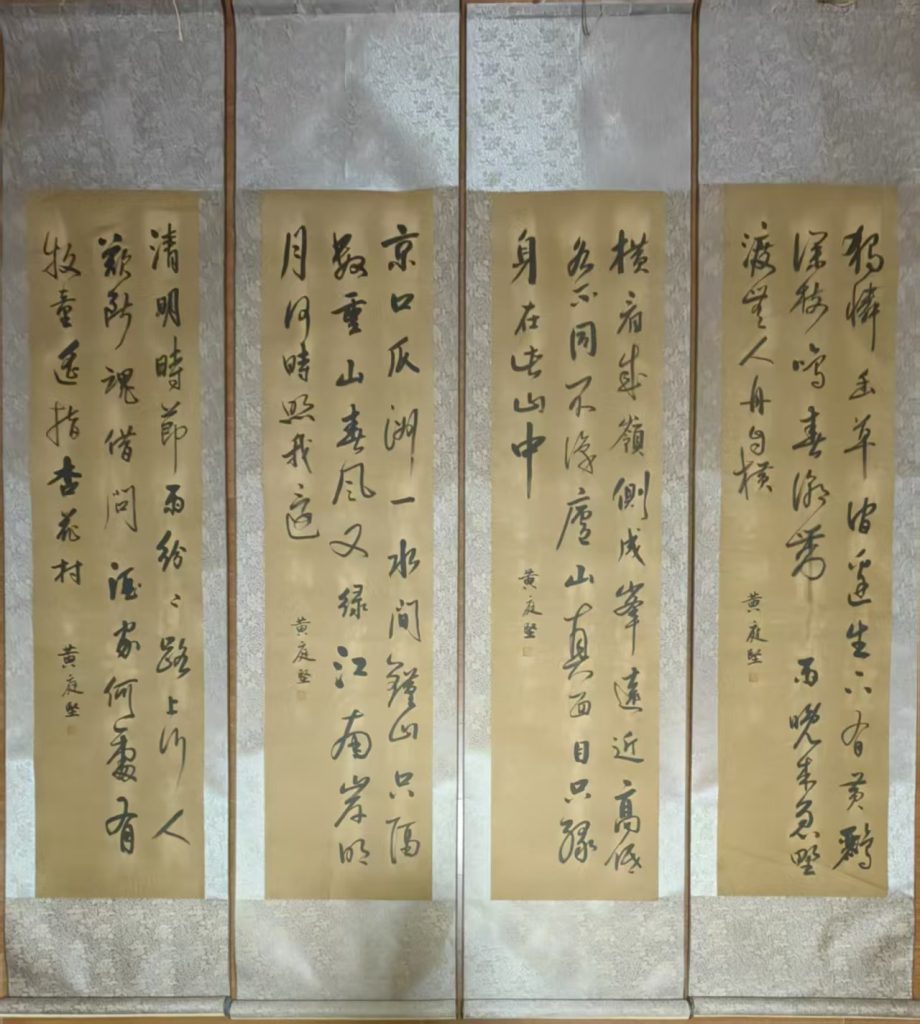 獨憐幽草澗邊生上有黃鸝
深樹鳴春潮帶雨晚來急野
渡無人舟自橫
黃庭堅
橫看成嶺側成峯遠近高低
各不同不識廬山真面目只緣
身在此山中
黃庭堅
京口瓜洲一水間鍾山只隔
數重山春風又綠江南岸明
月何時照我還
黃庭堅
清明時節雨紛〻路上行人
欲斷魂借問酒家何處有
牧童遙指杏花村
黃庭堅